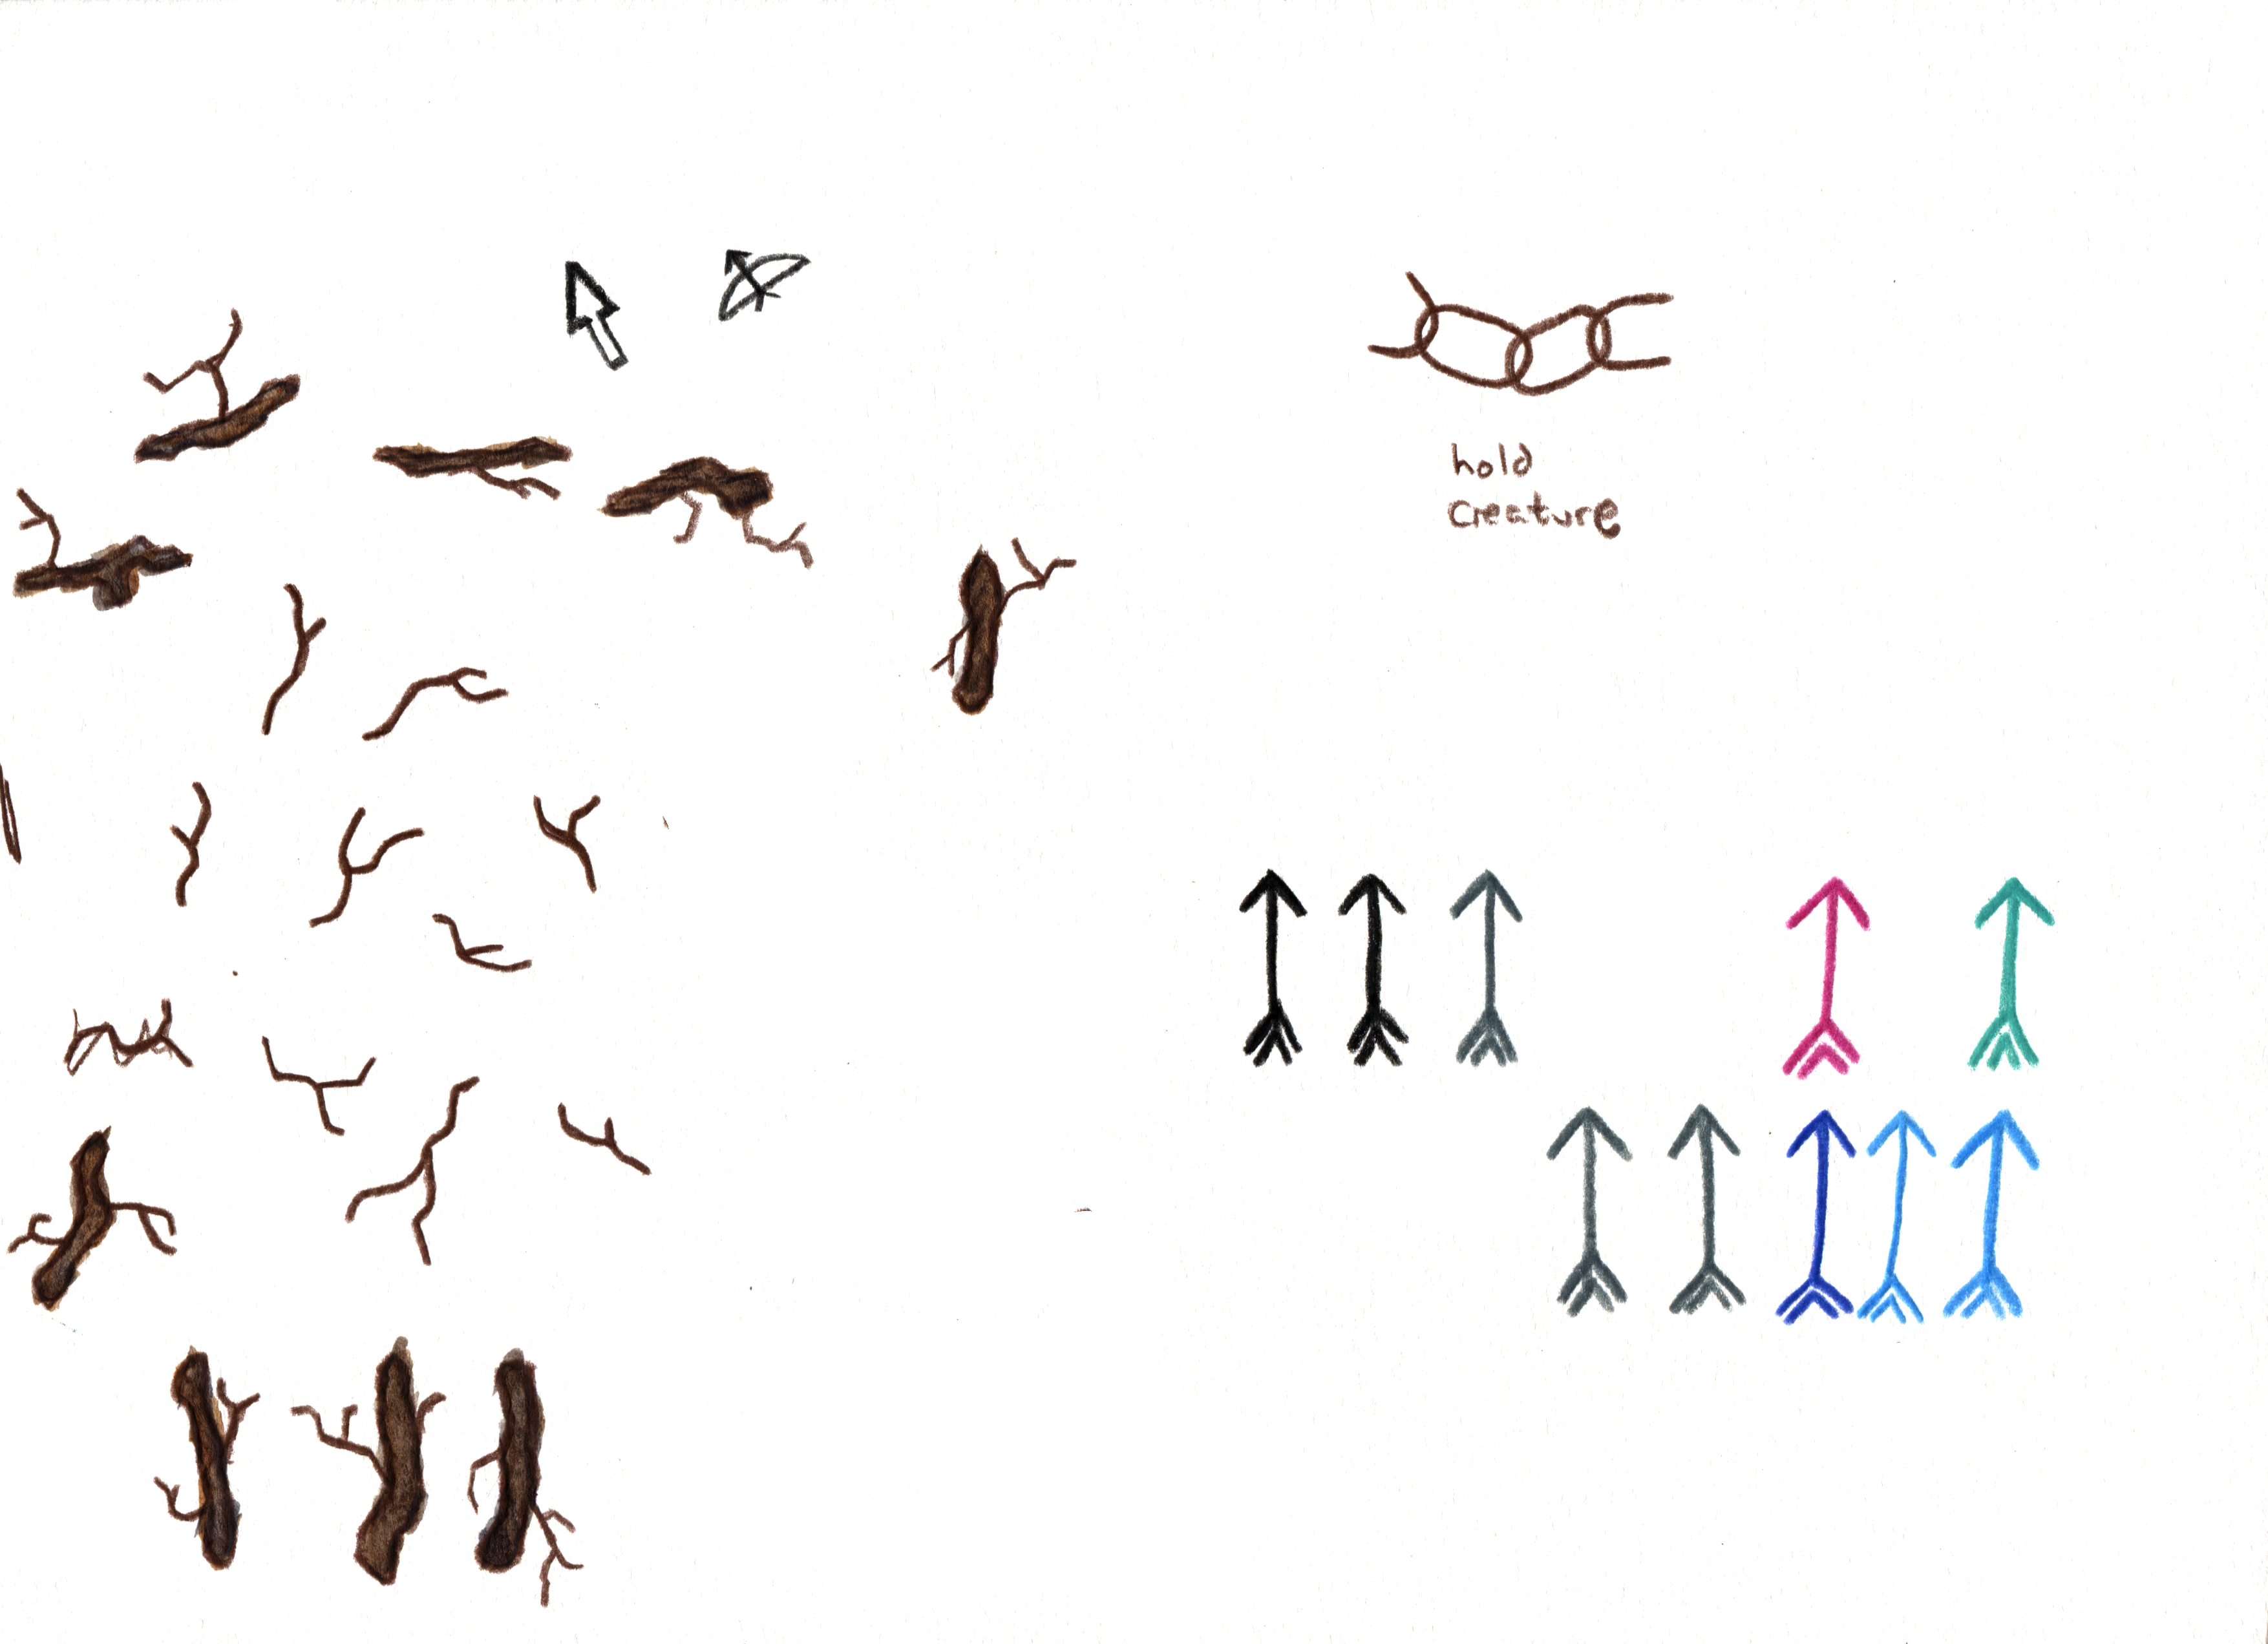 hold
creature